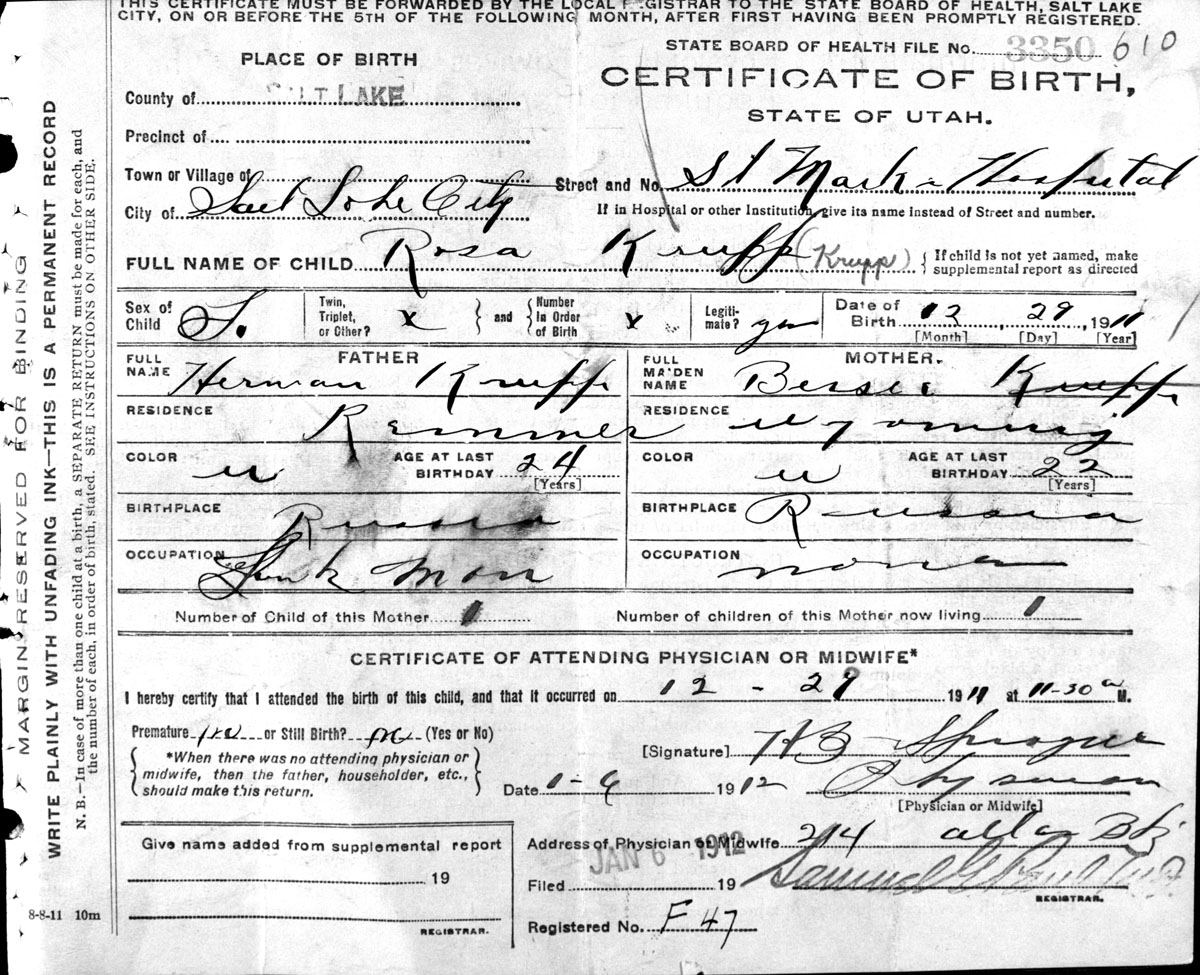 THIS CERTIFICATE MUST BE FORWARDED BY THE LOCAL REGISTRAR TO THE STATE BOARD OF HEALTH, SALT LAKE
CITY, ON OR BEFORE THE 5TH OF THE FOLLOWING MONTH, AFTER FIRST HAVING BEEN PROMPTLY REGISTERED.
STATE BOARD OF HEALTH FILE No. 3350 610
PLACE OF BIRTH
CERTIFICATE OF BIRTH,
STATE OF UTAH.
County of SALT LAKE
Precinct of
Town or Village of
Street and No. St Marks Hospital
City of Salt Lake City
If in Hospital or other Institution, give its name instead of Street and number.
FULL NAME OF CHILD Rosa Krupp (Krupp) { If child is not yet named, make
supplemental report as directed
Sex of Child F. Twin, Triplet, or Other? x } and { Number In Order of Birth x Legiti-mate? yes Date of Birth 12, 29, 1911
[Month] [Day] [Year]
FATHER MOTHER.
FULL NAME Herman Krupp FULL MAIDEN NAME Bessie Krupp
RESIDENCE Kemmer RESIDENCE Wyoming
COLOR w AGE AT LAST BIRTHDAY 24 COLOR w AGE AT LAST BIRTHDAY 22
[Years] [Years]
BIRTHPLACE Russia BIRTHPLACE Russia
OCCUPATION Junk Man OCCUPATION none
Number of Child of this Mother 1 Number of children of this Mother now living 1
CERTIFICATE OF ATTENDING PHYSICIAN OR MIDWIFE*
I hereby certify that I attended the birth of this child, and that it occurred on 12 - 29 1911 at 11-30 a M.
Premature no or Still Birth? no (Yes or No)
[Signature] H B Sprague
{ *When there was no attending physician or
midwife, then the father, householder, etc.,
should make this return. }
Date 1-6 1912 Physician
[Physician or Midwife]
Give name added from supplemental report
19
REGISTRAR.
Address of Physician or Midwife 214
JAN 6 1912
Filed 19 Samuel G Paul
REGISTRAR.
Registered No. F 47
8-8-11 10m
MARGIN RESERVED FOR BINDING
WRITE PLAINLY WITH UNFADING INK—THIS IS A PERMANENT RECORD
N. B.—In case of more than one child at a birth, a SEPARATE RETURN must be made for each, and
the number of each, in order of birth, stated. SEE INSTRUCTIONS ON OTHER SIDE.